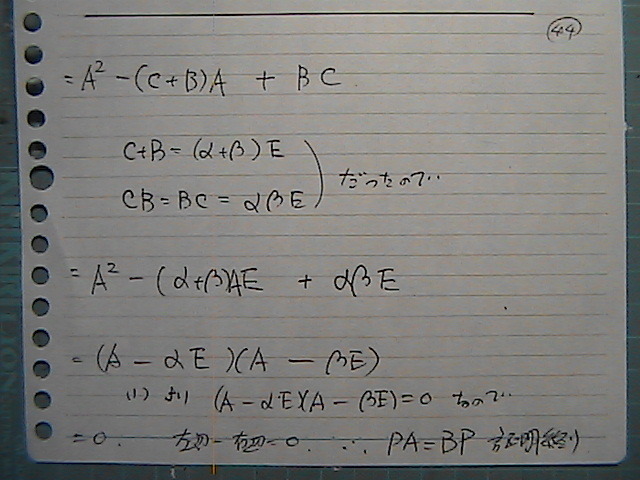 44
= A² - (C+B)A + BC
C+B = (α+β)E
だったので..
CB = BC = αβE
= A² - (α+β)AE + αβE
= (A - αE)(A - βE)
(1) より (A - αE)(A - βE) = 0 なので..
= 0. 左辺 - 右辺 = 0. ∴ PA = BP 証明(終り)